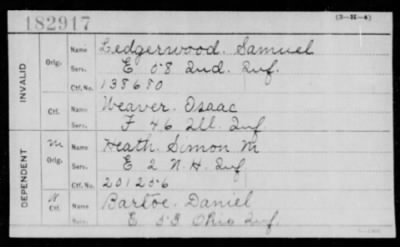 182917
(3-M-4)
INVALID
Orig. Name Ledgerwood. Samuel
Serv. E 58 Ind. Inf.
Ctf. No. 138680
Ctf. Name Weaver. Isaac
Serv. F 46 Ill. Inf
DEPENDENT
M Orig. Name Heath. Simon M
Serv. E 2 N.H. Inf
Ctf. No. 201256
N Ctf. Name Bartoe. Daniel
Serv. E 53 Ohio Inf.